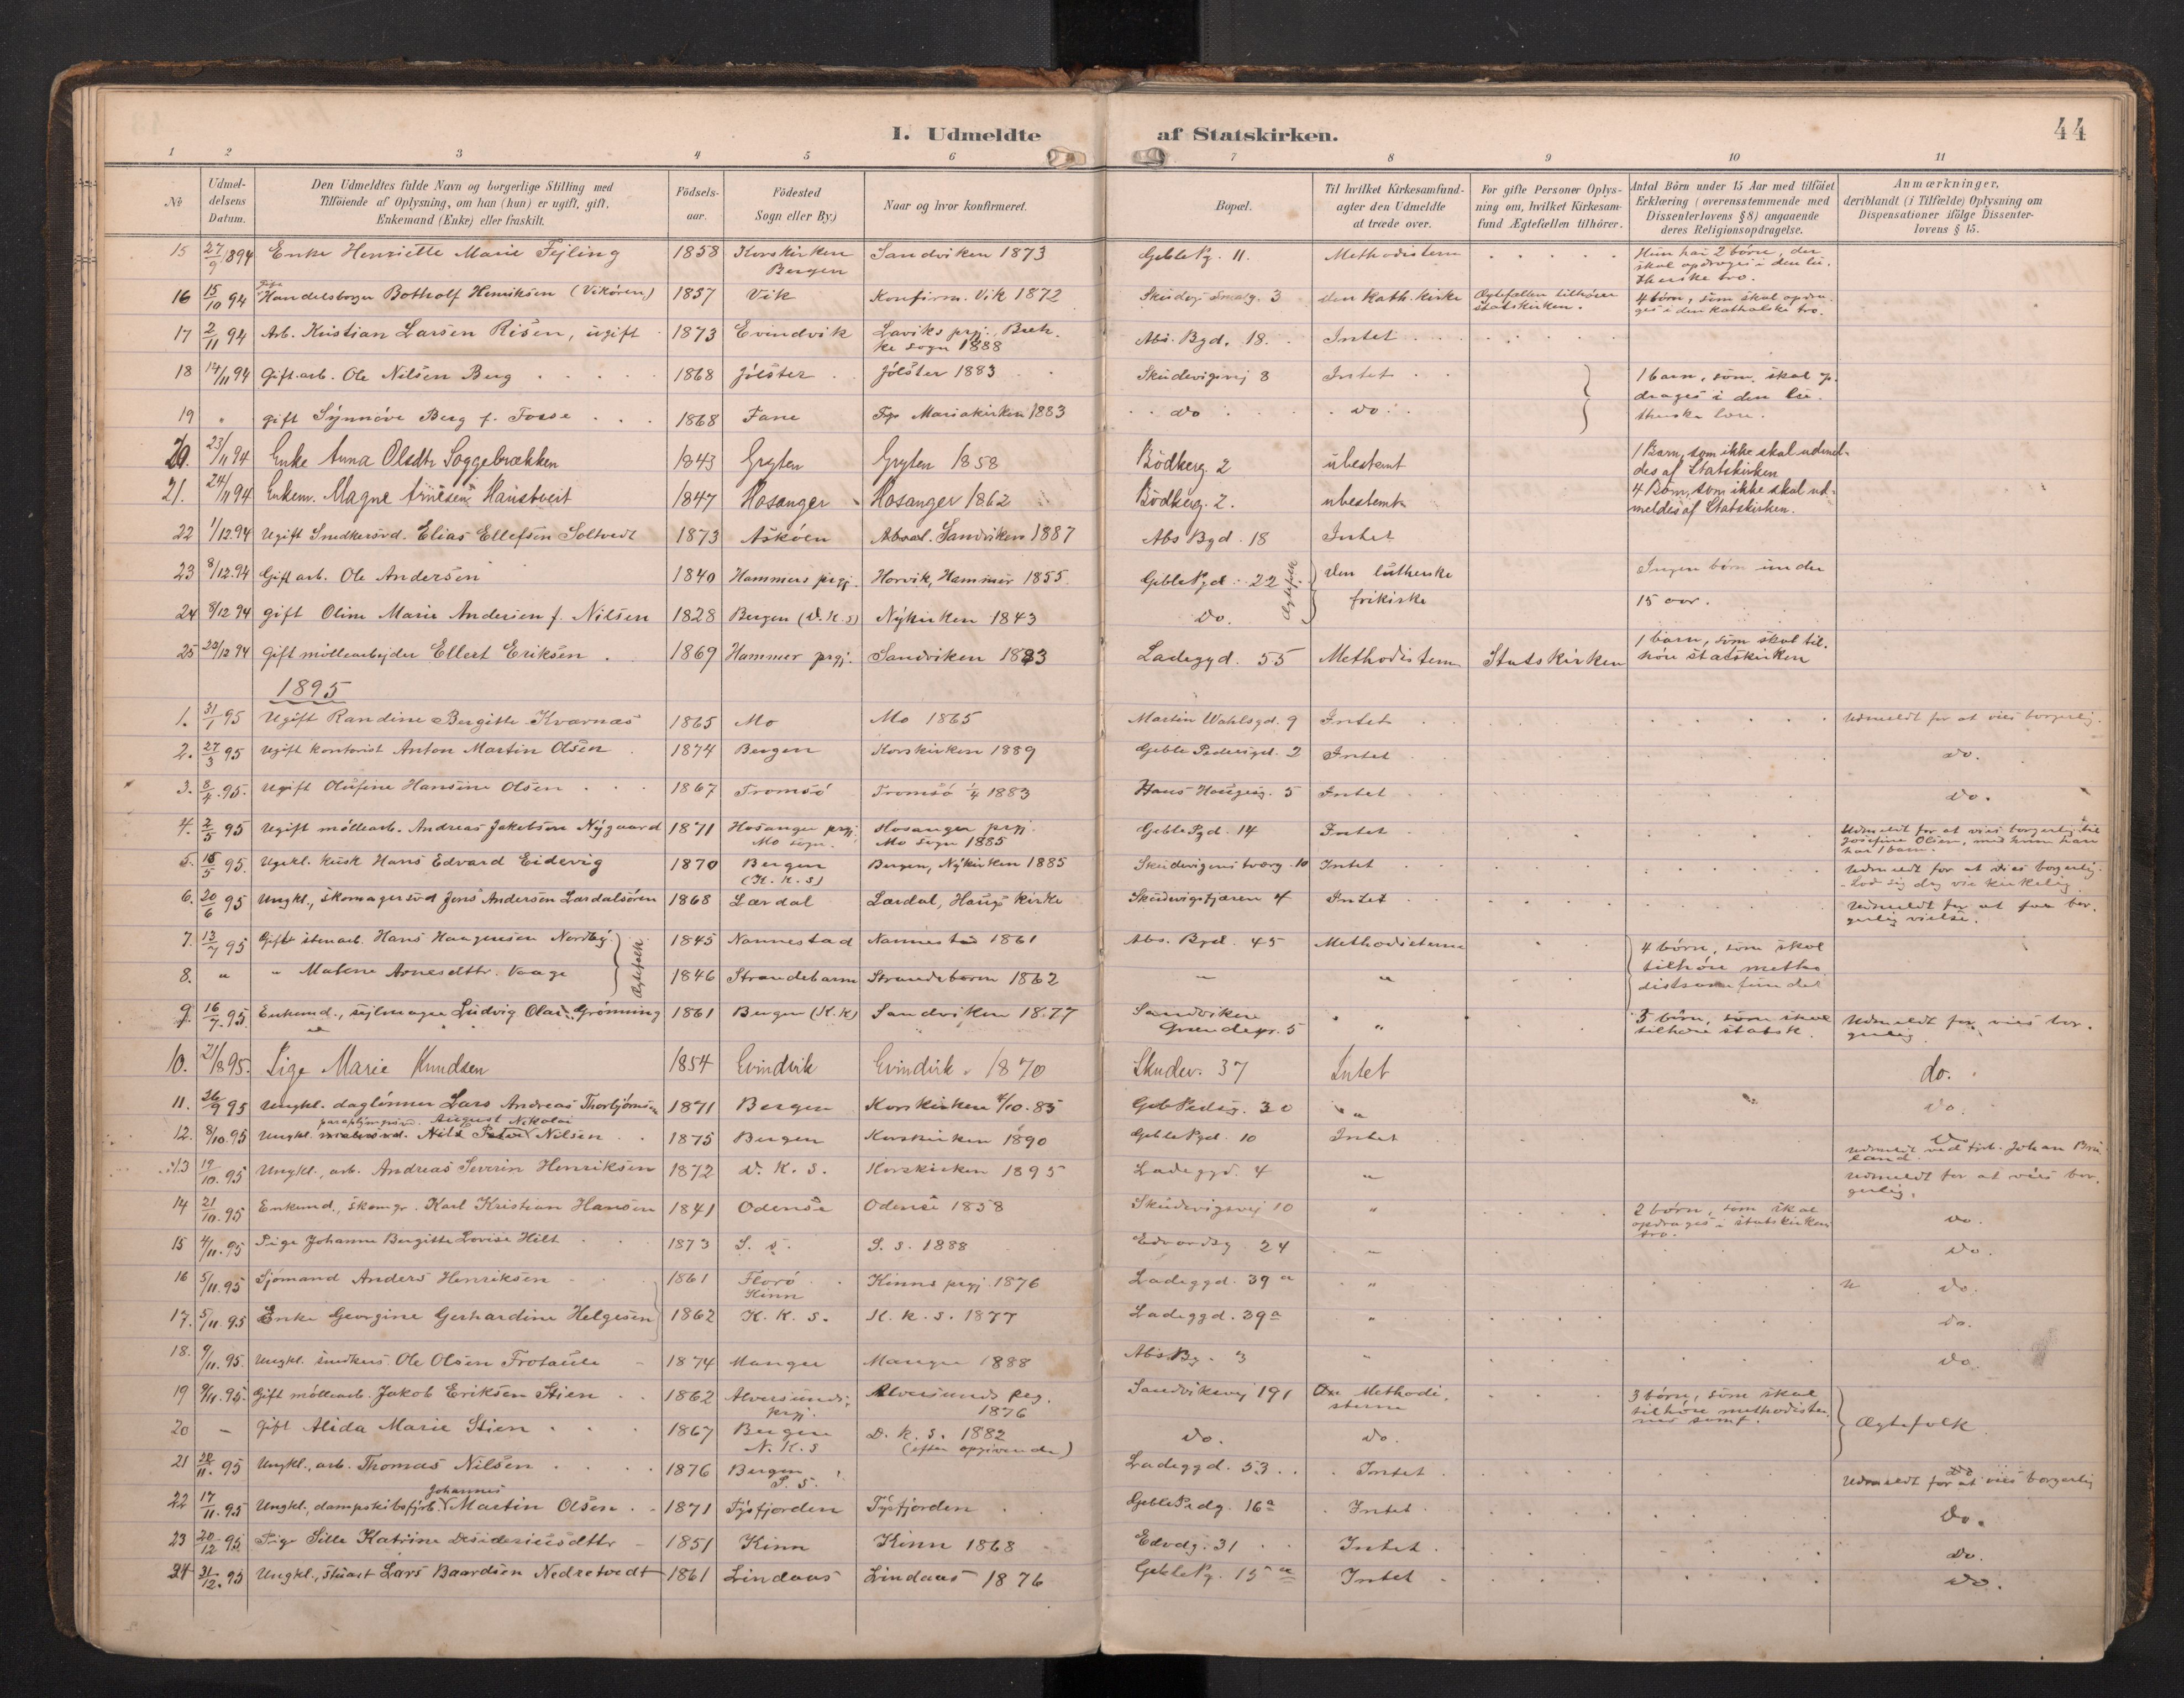 I. Udmeldte af Statskirken.
44
1 2 3 4 5 6 7 8 9 10 11
No
Udmeldelsens Datum.
Den Udmeldtes fulde Navn og borgerlige Stilling med
Tilföiende af Oplysning, om han (hun) er ugift, gift,
Enkemand (Enke) eller fraskilt.
Födsels-
aar.
Födested
Sogn eller By.)
Naar og hvor konfirmeret.
Bopæl.
Til hvilket Kirkesamfund
agter den Udmeldte
at træde over.
For gifte Personer Oplys-
ning om, hvilket Kirkesam-
fund Ægtefællen tilhörer.
Antal Börn under 15 Aar med tilföiet
Erklæring (overensstemmende med
Dissenterlovens § 8) angaaende
deres Religionsopdragelse.
Anmærkninger,
deriblandt (i Tilfælde) Oplysning om
Dispensationer ifölge Dissenter-
lovens § 15.
15 27/9 1894 Enke Henriette Marie Fejling 1858 Korskirken Bergen Sandviken 1873 Geble Pg. 11. Methodistern Hun har 2 börn, der skal opdrages i den lutherske tro.
16 15/10 94 Handelsborger Botholf Henriksen (Vikören) 1857 Vik Konfirm. Vik 1872 3 den kath. kirke Ægtefællen tilhörer statskirken. 4 börn, som skal opdrages i den katholske tro.
17 2/11 94 Arb. Kristian Larsen Risen, ugift 1873 Evindvik Laviks prgj. Brekke sogn 1888 Abs. Bgd. 18. Intet
18 14/11 94 Gift arb. Ole Nilsen Berg 1868 Jölster Jölster 1883 Skudevigsvej 8 Intet 1 barn, som skal opdrages i den lutherske lære.
19 " gift Synnöve Berg f. Fosse 1868 Fane Mariakirken 1883 do do
20. 23/11 94 Enke Anna Olsdtr Soggebrækken 1843 Gryten Gryten 1858 Bödkerg. 2 ubestemt 1 Barn, som ikke skal udmeldes af Statskirken
21. 24/11 94 Enkem. Magne Arnesen Haustveit 1847 Hosanger Hosanger 1862 Bödkerg. 2. ubestemt 4 Börn, som ikke skal udmeldes af Statskirken.
22 1/12.94 Ugift Snedkersvd. Elias Ellefsen Soltvedt 1873 Asköen Sandviken 1887 Abs Bgd. 18 Intet
23 8/12.94 Gift arb. Ole Andersen 1840 Hammers prgj. Horvik, Hammer 1855 Geble Pgd. 22 Ægtefolk den lutherske frikirke Ingen börn under 15 aar.
24 8/12 94 gift Oline Marie Andersen f. Nilsen 1828 Bergen (D.K.S) Nykirken 1843 Do.
25 22/12 94 Gift möllearbejder Ellert Eriksen 1869 Hammer prgj. Sandviken 1883 Ladeggd. 55 Methodistern Statskirken 1 barn, som skal tilhöre statskirken
1895
1. 31/1 95 Ugift Randine Bergitte Kvarnæs 1865 Mo Mo 1865 Martin Wahlsgd. 9 Intet Udmeldt for at vies borgerlig.
2. 27/3 95 Ugift kontorist Anton Martin Olsen 1874 Bergen Korskirken 1889 Geble Pedersgd. 2 Intet do.
3. 8/4 95. Ugift Olufine Hansine Olsen 1867 Tromsö Tromsö 1/4 1883 Hans Haugesg. 5 Intet do.
4. 2/5 95 Ugift möllearb. Andreas Jakobsen Nygaard 1871 Hosanger prgj. Mo sogn. Hosanger prgj. Mo sogn 1885 Geble Pgd. 14 Intet Udmeldt for at vies borgerlig til Josefine Olsen, med hvem han har 1 barn.
5. 15/5 95. Ungkl. kusk Hans Edvard Eidevig 1870 Bergen (K.K.S) Bergen, Nykirken 1885 10 Intet Udmeldt for at vies borgerlig. Lod sig dog vie kirkelig
6. 20/6 95 Ungkl., skomagersvd Jens Andersen Lærdalsören 1868 Lærdal Lærdal, Haugs kirke Skudevigsfjæren 4 Intet Udmeldt for at faa borgerlig vielse.
7. 13/7 95 Gift stenarb. Hans Haagensen Nordby 1845 Nannestad Nannestad 1861 Abs. Bgd. 45 Methodisterne 4 börn, som skal tilhöre methodistsamfundet
8. " " Malene Arnesdttr. Vaage Ægtefolk 1846 Strandebarm Strandebarm 1862 " "
9. 16/7.95 Enkemd., sejlmager Ludvig Olai Grönning 1861 Bergen (K.K) Sandviken 1877 Sandviken 5 " 3 börn, som skal tilhöre statsk. Udmeldt for vies borgerlig
10. 21/8 95. Pige Marie Knudsen 1854 Evindvik Evindvik 1870 Skudev. 37 Intet do.
11. 26/9 95 Ungkl. daglönner Lars Andreas Thorbjörnsen 1871 Bergen Korskirken 4/10.85 Geb Pedsg. 30 " do.
12. 8/10.95 Ungkl. August Nikolai Nilsen 1875 Bergen Korskirken 1890 Geble Pgd. 10 Intet
13 19/10.95 Ungkl., arb. Andreas Severin Henriksen 1872 D.K.S. Korskirken 1895 Ladeggd. 4 " Udmeldt for at vies borgerlig.
14 21/10.95 Enkemd., skomgr. Karl Kristian Hansen 1841 Odense Odense 1858 Skudevigsvej 10 " 2 börn, som skal opdrages i statskirkens tro. do.
15 4/11.95 Pige Johanne Bergitte Lovise Hilt 1873 S.s. S.s. 1888 Edvardsg. 24 " do.
16 5/11.95 Sjömand Anders Henriksen 1861 Florö Kinn Kinns prgj. 1876 Ladeggd. 39 a " do.
17. 5/11.95 Enke Georgine Gerhardine Helgesen 1862 K.K.S. K.K.S. 1877 Ladeggd. 39 a " do.
18. 9/11.95. Ungkl. snedkers. Ole Olsen 1874 Manger Manger 1888 Abs Bg. 3 " do.
19 9/11.95. Gift möllearb. Jakob Eriksen Stien 1862 Alversunds prgj. Alversunds prg. 1876 Sandviksvej 191 Methodisterne 3 börn, som skal tilhöre methodisternes samf. Ægtefolk
20 " Gift Alida Marie Stien 1867 Bergen N.K.S D.K.S. 1882 (efter opgivende) do. do.
21 28/11.95 Ungkl., arb. Thomas Nilsen 1876 Bergen S.S. Ladeggd. 53 Intet Udmeldt for at vies borgerlig
22 17/11.95 Ungkl., dampskibsfyrb. Johannes Martin Olsen 1871 Tysfjorden Tysfjorden Geble Pedg. 16 a Intet Do.
23 20/12 95 Pige Sille Katrine Desideriusdttr 1851 Kinn Kinn 1868 Edvdg. 31 Intet do.
24 31/12.95 Ungkl., stuart Lars Baardsen Nedretvedt 1861 Lindaas Lindaas 1876 Geble Pg. 15 a Intet do.